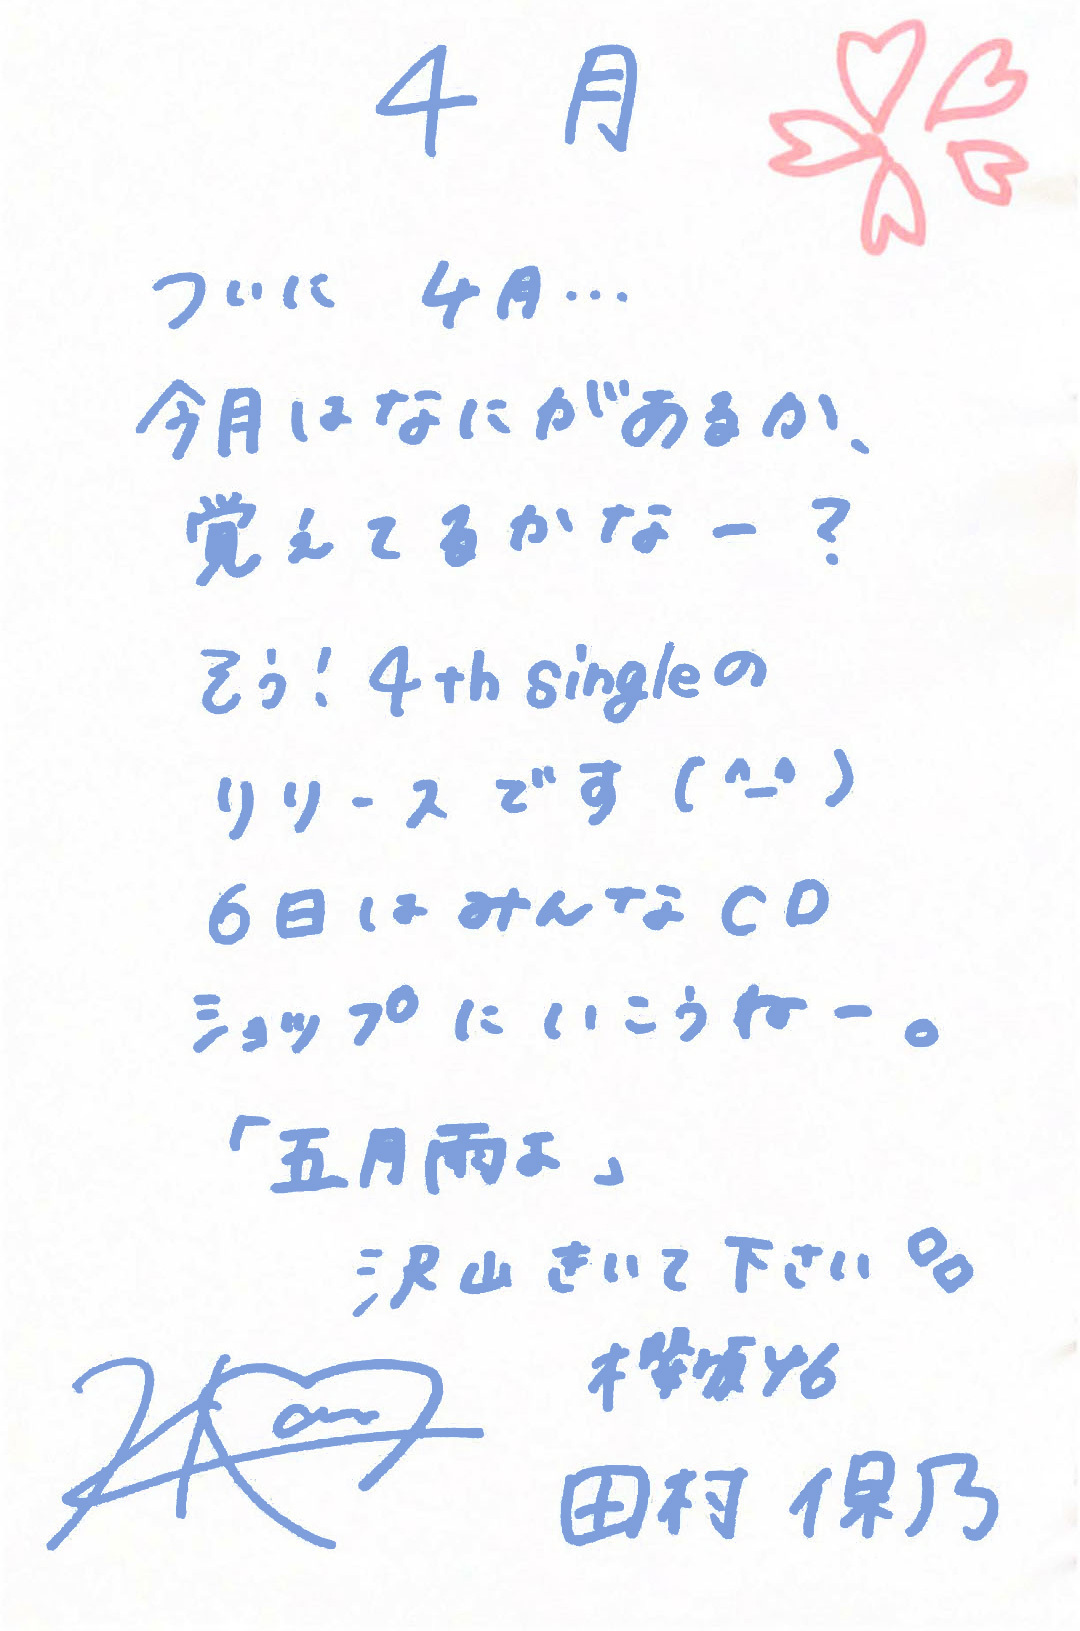 4月
ついに 4月…
今月はなにがあるか、
覚えてるかなー?
そう!4th singleの
リリースです(^_^)
6日はみんなCD
ショップにいこうねー。
「五月雨よ」
沢山きいて下さい
櫻坂46
田村 保乃